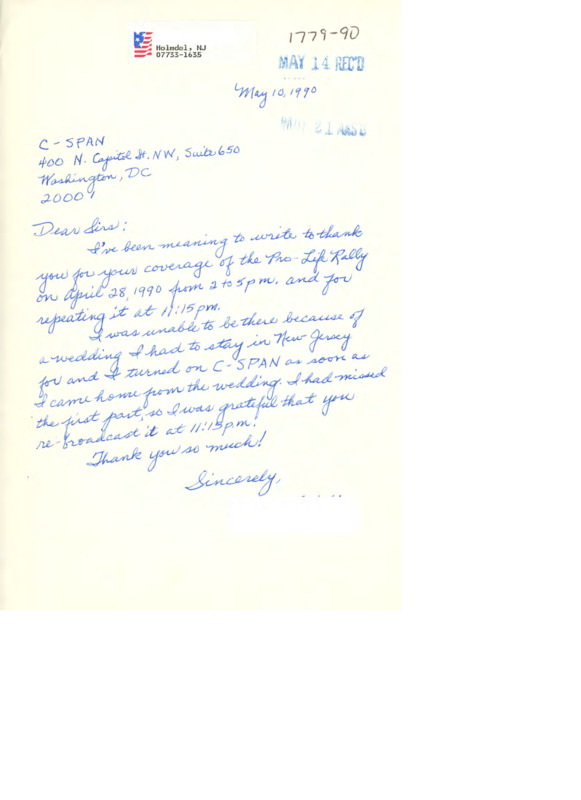 Holmdel, NJ
07733-1635
1779-90
MAY 14 REC'D
May 10, 1990
C-SPAN
400 N. Capitol St. NW, Suite 650
Washington, DC
20001
Dear Sirs:
I've been meaning to write to thank
you for your coverage of the Pro-Life Rally
on April 28, 1990 from 2 to 5 pm. and for
repeating it at 11:15 pm.
I was unable to be there because of
a wedding I had to stay in New Jersey
for and I turned on C-SPAN as soon as
I came home from the wedding. I had missed
the first part, so I was grateful that you
re-broadcast it at 11:15 pm.!
Thank you so much!
Sincerely,